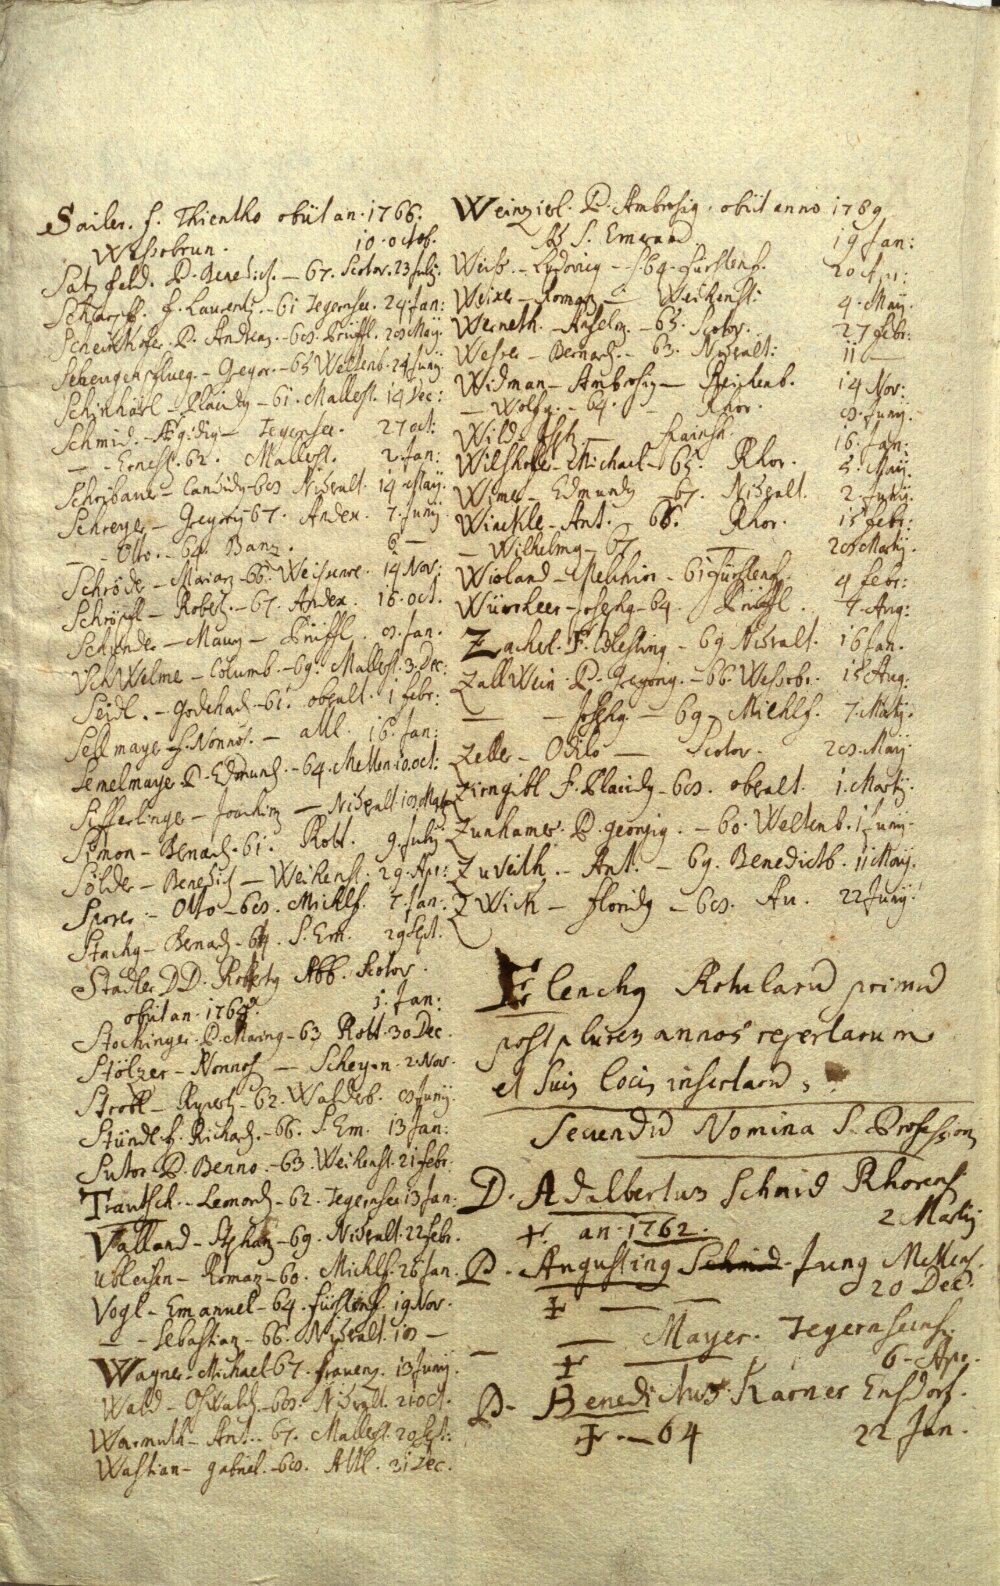 Sailer. f. Thientho obiit an. 1766.
Wessobrun. 10. octob.
Satzfeld. P. Bened. – 67. Scotor. 23 July.
Scharpff. f. Laurent. – 61 Tegernsee. 24 Jan:
P. Andreas – 68. Prüffl. 20 May.
– Gregor. – 65 Weltenb. 24 Juny
– Placidg – 61. Mallest. 14 Dec:
Schmid. – Ægidig – Tegernsee. 27 oct:
— – Ernest. 62. Mallest. 2 Jan:
– Candidg – 68 Nideralt. 14 May.
Schreyer – Gregorig 67. Andex. 7. Juny
— – Otto. – 64. Banz. 6 —
Schröder – Marian – 66. 14 Nov:
Schröpfl – Robert. – 67. Andex. 16. oct.
– Maurg – Prüffl. 8. Jan.
– Columb. – 69. Mallest. 3. Dec:
Seidl. – Godehard – 61. oberalt. 1 febr:
Sellmayer – f. Nonnos. – Attl. 16. Jan:
Semelmayer P. Edmund. – 64. Metten 10. oct:
Sifferlinger – Joachim — Nideralt.
Simon – Bernard. 61. Rott. 9. July
Sölder – Benedict — Weihenst. 29. Apr:
Sporer – Otto – 68. Michlf. 7. Jan:
Stachg – Bernard – 64. S. Em. 29 Sept.
Stadler DD. Abb. Scotor.
obiit an. 1764. 1. Jan:
Stochinger. P. Maring – 63 Rott. 30 Dec.
Stölzer – Nonnos — Scheyrn. 2. Nov.
Strobl – Rupert – 62. 8 Juny.
Stündl f. Richard. – 66. S. Em. 13 Jan:
Sutor P. Benno – 63. Weihenst. 21 febr:
– Leonard – 62. Tegernsee 13 Jan:
Valland – Stephan – 69. Nideralt. 22 febr.
– Roman – 60. Michlf. 26 Jan.
Vogl – Emanuel – 64. fürstenf. 19 Nov.
— – Sebastian – 66. Nideralt. 10 —
Wagner – Michael 67. 13 Juny.
Wald – Oswald. – 68. Nideralt. 21 oct.
Warmuth – Ant. 67. Mallest. 29 Sept:
Wastian – gabriel. – 68. Attl. 31 Dec.
Weinzierl. P. Ambrosig. obiit anno 1789
Ab S. Emerand. 19 Jan:
Weiss. – Ludovicg – f. 64. fürstenf. 20 Apr:
Weixer – Roman – Weihenst: 4. May.
Werneth. – Anselm. – 65. Scotor. 27 febr:
– Bernard. – 63. Nideralt: 11 —
Widman – Ambrosig — Reichenb. 14 Nov:
— Wolfg. – 64. – Rhor. 8. Juny.
Wild. – Jsph. – 16. Jan:
– Michael – 65. Rhor. 5. May.
Wimer – Edmundg – 67. Nideralt. 2. Juny.
Winckler – Ant. – 66. Rhor. 15 febr:
— Wilhelmg – 67 — 20 Martij.
Wioland – Melchior – 61 fürstenf. 4 febr:
– Josephg – 64. Prüffl. 7. Aug:
Zacherl. F. Cölesting – 69 Nideralt. 16 Jan.
Zallwein. P. Gregorig. – 66. Wessobr. 18 Aug:
— – Josephg. – 69. Michlf. 7. Martij.
Zeller – Odilo — Scotor. 28. May.
Zirngibl f. Placidg – 68. oberalt. 1. Martij.
Zunhamer. P. georgig. – 60. Weltenb. 1 Juny.
Zuveith. – Ant. – 69. Benedictb. 11 May.
Zwick – floridg – 68. Au. 22 Juny.
Elenchg Rotularu primu
post plures annos repertarum
et suis locis insertaru
Secundu Nomina S. Profession
D. Adalbertus Schmid Rhorens.
2 Martij
+ an. 1762.
P. Augusting Jung Mettens.
+ — — 20 Dec.
— — Mayer. Tegernseens.
+ — 6. Apr.
P. Benedictus Karner Ensdorf.
+ — 64 22 Jan.